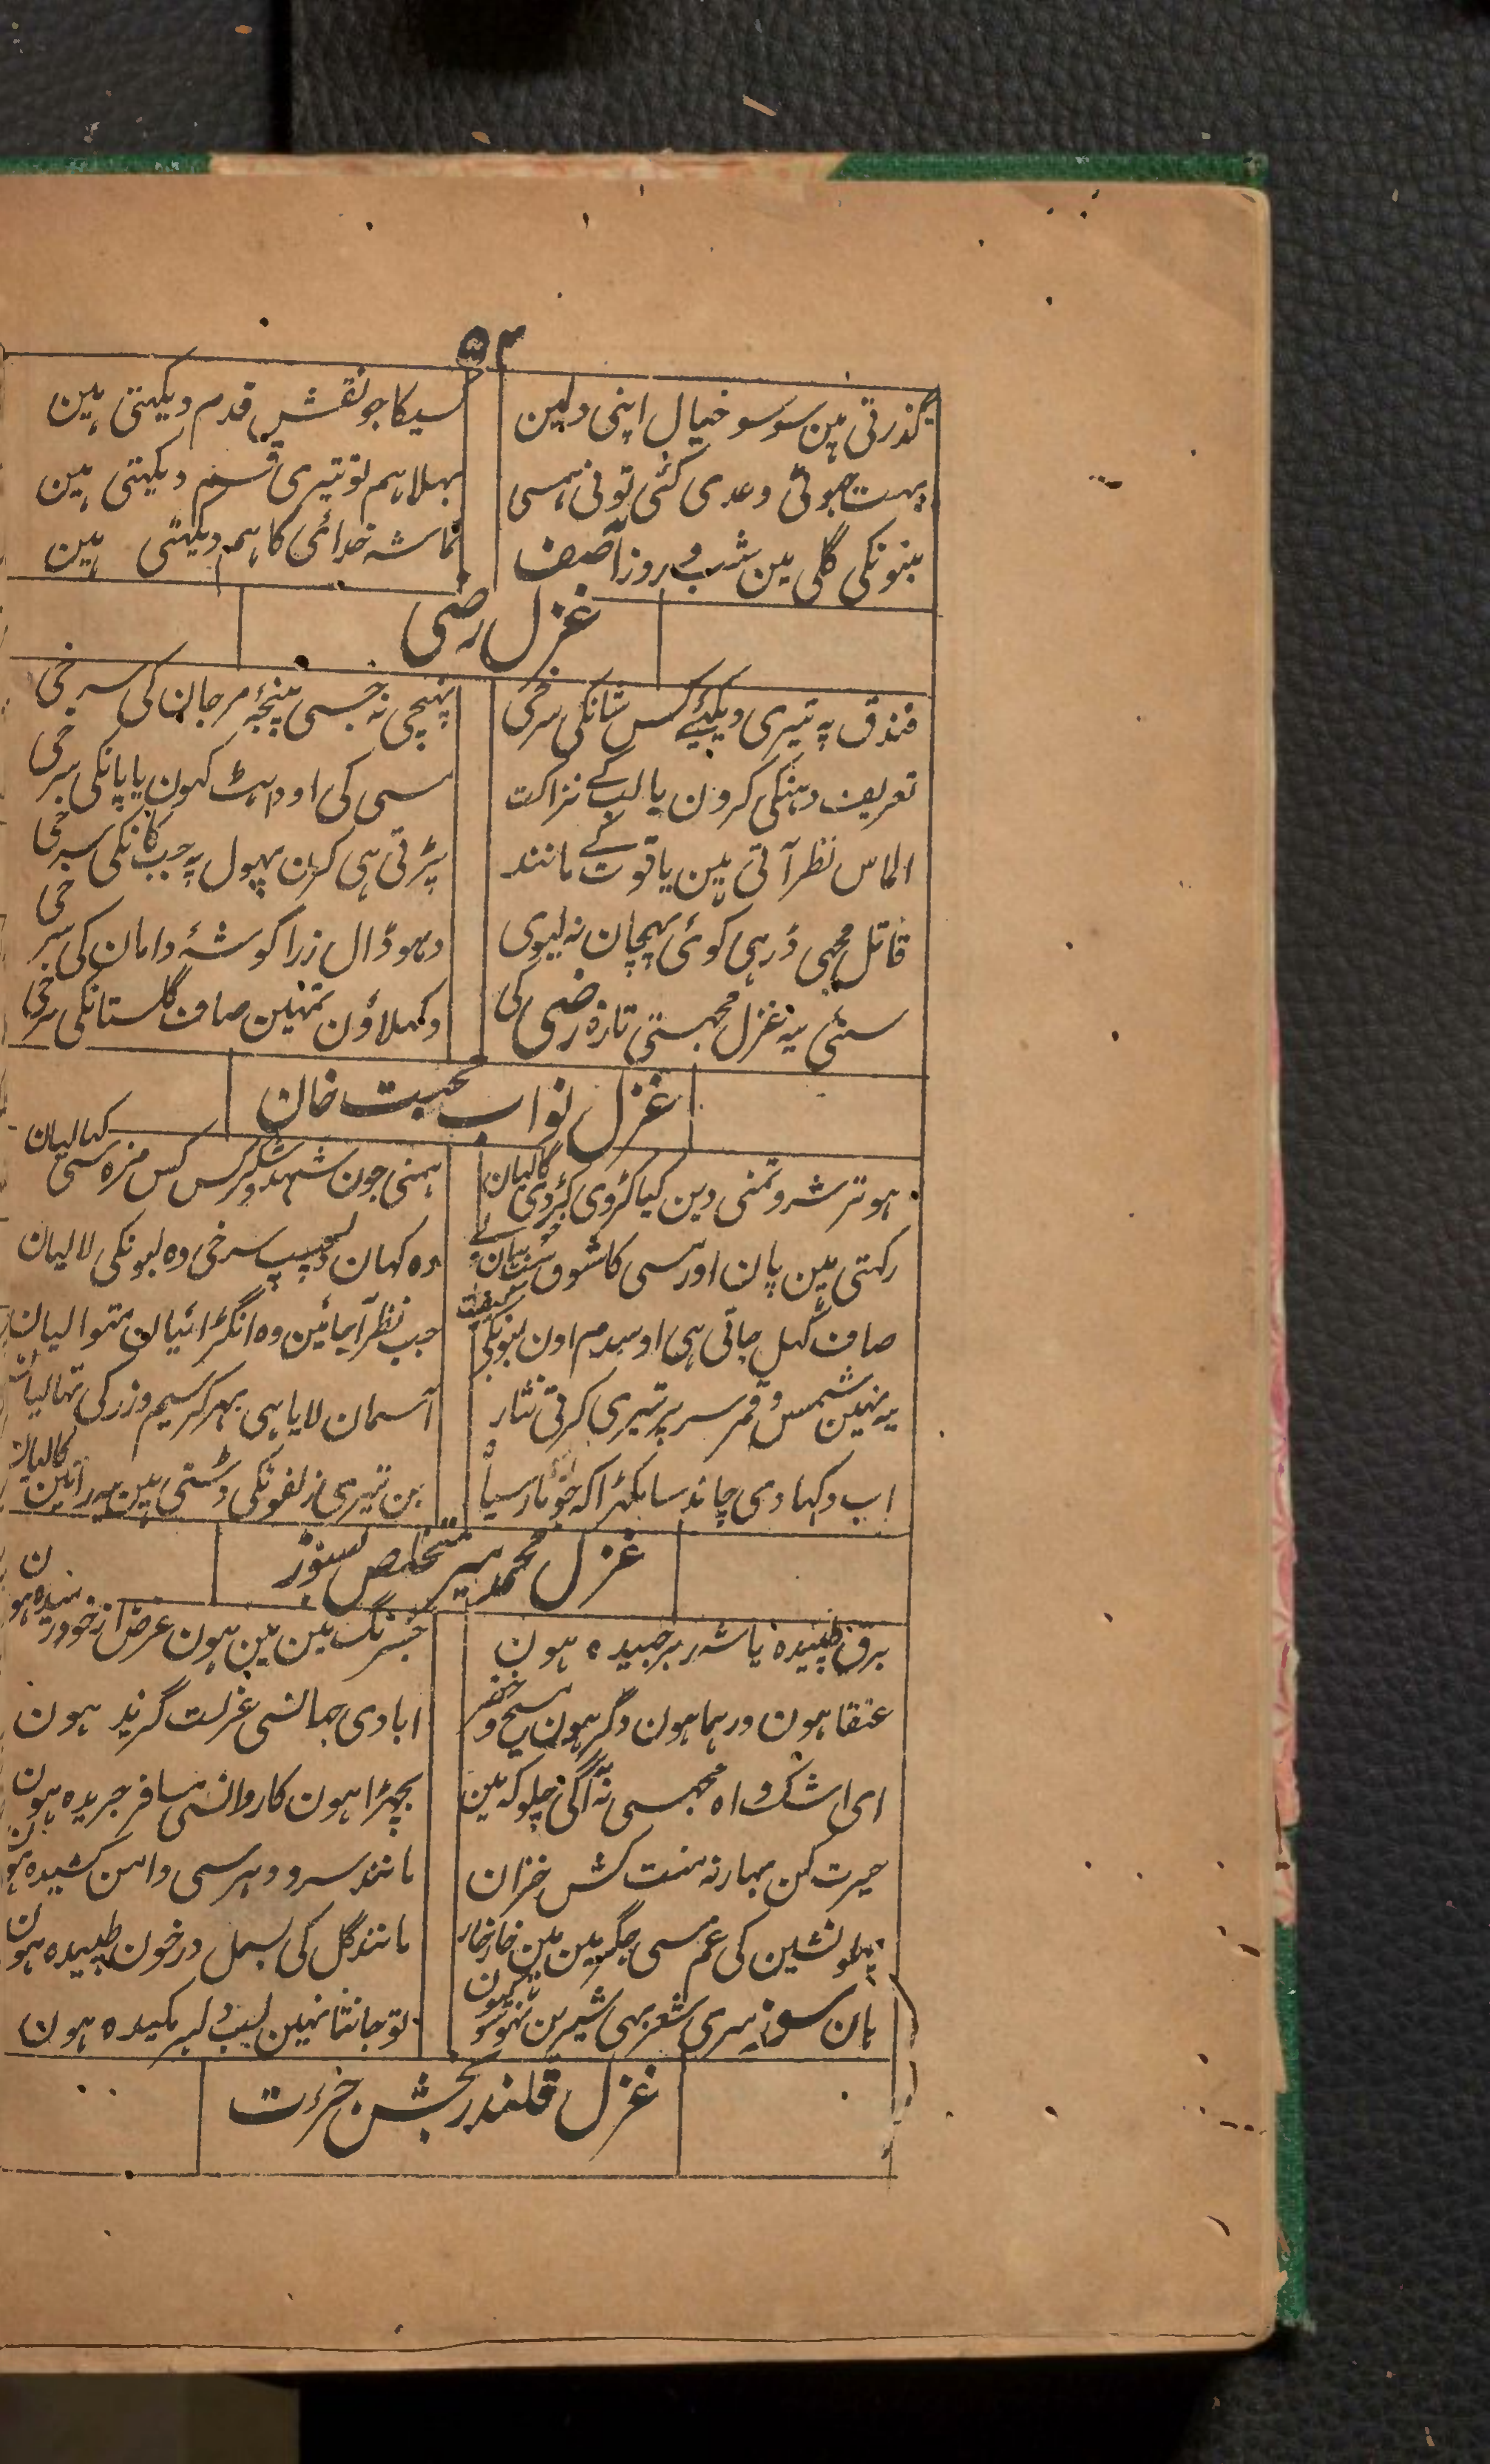 ۵۳
گذرتی ہین سو سو خیال اپنی دلمین
کسیکا جو نقش قدم دیکہتی ہین
بہت جہوٹی وعدی کئی تونی ہمسی
بہلا ہم تو تیری قسم دیکہتی ہین
بتونکی گلی مین شب و روز آصف
تماشہ خدائی کا ہم دیکہتی ہین
غزل رضی
فندق پہ تیری دیکہئے کس شانکی سرخی
پہنچی نہ جسی پنجۂ مرجان کی سرخی
تعریف دہنکی کرون یا لب کے نزاکت
مسی کی اوداہٹ کہون یا پانکی سرخی
الماس نظر آتی ہین یاقوت کے مانند
پڑتی ہی کرن پہول پہ جب کانکی سرخی
قاتل مجہی ڈر ہی کوئی پہچان نہ لیوی
دہو ڈال زرا گوشۂ دامان کی سرخی
سنئی یہ غزل مجہستی تازہ رضی کی
دکہلاؤن تمہین صاف گلستانکی سرخی
غزل نواب محبت خان
ہو ترشرو تمنی دین کیا کڑوی کڑوی گالیان
ہمنی جون شہد و شکر کس کس مزہ سی کہالیان
رکہتی ہین پان اور مسی کا شوق
وہ کہان دلچسپ سرخی وہ لبونکی لالیان
صاف کہل جاتی ہی اوسدم اون لبونکی کیفیت
جب نظر آجائین وہ انگڑائیان متوالیان
یہ نہین شمس و قمر سر پر تیری کرتی نثار
آسمان لایا ہی بہر کر سیم و زر کی تہالیان
اب دکہا دی چاند سا مکہڑا کہ
بن تیری زلفونکی ڈستی ہین یہ راتین کالیان
غزل محمد میر متخلص بسوز
برق طپیدہ یا شرر برجہیدہ ہون
جسرنگ مین مین ہون غرض از خود رمیدہ ہون
عنقا ہون ور ہما ہون وگر ہون مسیح و خضر
ابادی جہانسی عزلت گزیدہ ہون
ای اشک و اہ مجہسی نہ آگی چلو کہ مین
بچہڑا ہون کاروانسی مسافر جریدہ ہون
حیرت کن بہار نہ منت کش خزان
مانند سرو دہر سی دامن کشیدہ ہون
پہلو نشین کی غم سی جگر مین مین خار خار
مانند گل کی بسمل درخون طپیدہ ہون
ہان سوز میری شعر بہی شیرین نہو تو کیون
تو جانتا نہین لب دلبر مکیدہ ہون
غزل قلندر بخش جرءت